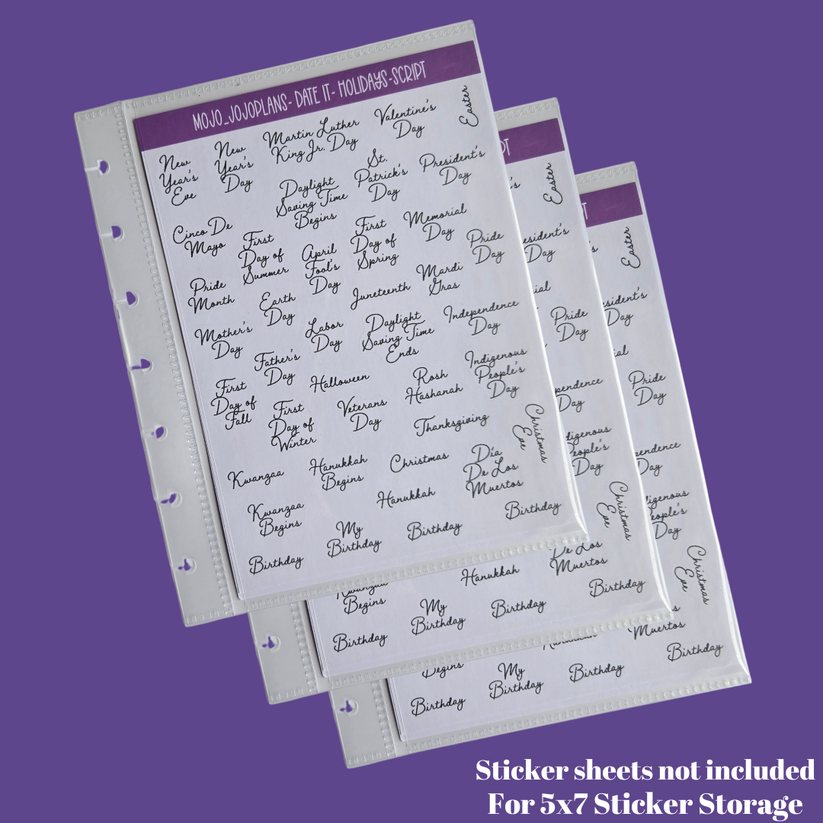 MOJO_JOJOPLANS- DATE IT- HOLIDAYS-SCRIPT
New Year's Eve
New Year's Day
Martin Luther King Jr. Day
Valentine's Day
Easter
Daylight Saving Time Begins
St. Patrick's Day
President's Day
Cinco De Mayo
First Day of Summer
April Fool's Day
First Day of Spring
Memorial Day
Pride Month
Earth Day
Juneteenth
Mardi Gras
Pride Day
Mother's Day
Father's Day
Labor Day
Daylight Saving Time Ends
Independence Day
First Day of Fall
First Day of Winter
Halloween
Veterans Day
Rosh Hashanah
Indigenous People's Day
Thanksgiving
Christmas Eve
Kwanzaa
Hanukkah Begins
Christmas
Día De Los Muertos
Kwanzaa Begins
Hanukkah
Birthday
My Birthday
Birthday
Birthday
PT
's
Easter
esident's Day
ial
Pride Day
pendence Day
digenous eople's Day
Christmas Eve
De Los Muertos
Kwanzaa Begins
Hanukkah
Birthday
My Birthday
Birthday
Birthday
T
Easter
sident's Day
ial
Pride Day
endence Day
igenous eople's Day
Christmas Eve
s
Muertos
Begins
Birthday
My Birthday
Birthday
Birthday
Sticker sheets not included
For 5x7 Sticker Storage